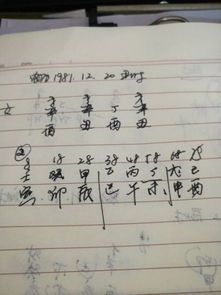 1981.12.20 丑时
女 辛 辛 丁 辛
酉 丑 酉 丑
⑧ 18 28 38 48 58 68 78
壬 癸 甲 乙 丙 丁 戊 己
寅 卯 辰 巳 午 未 申 酉